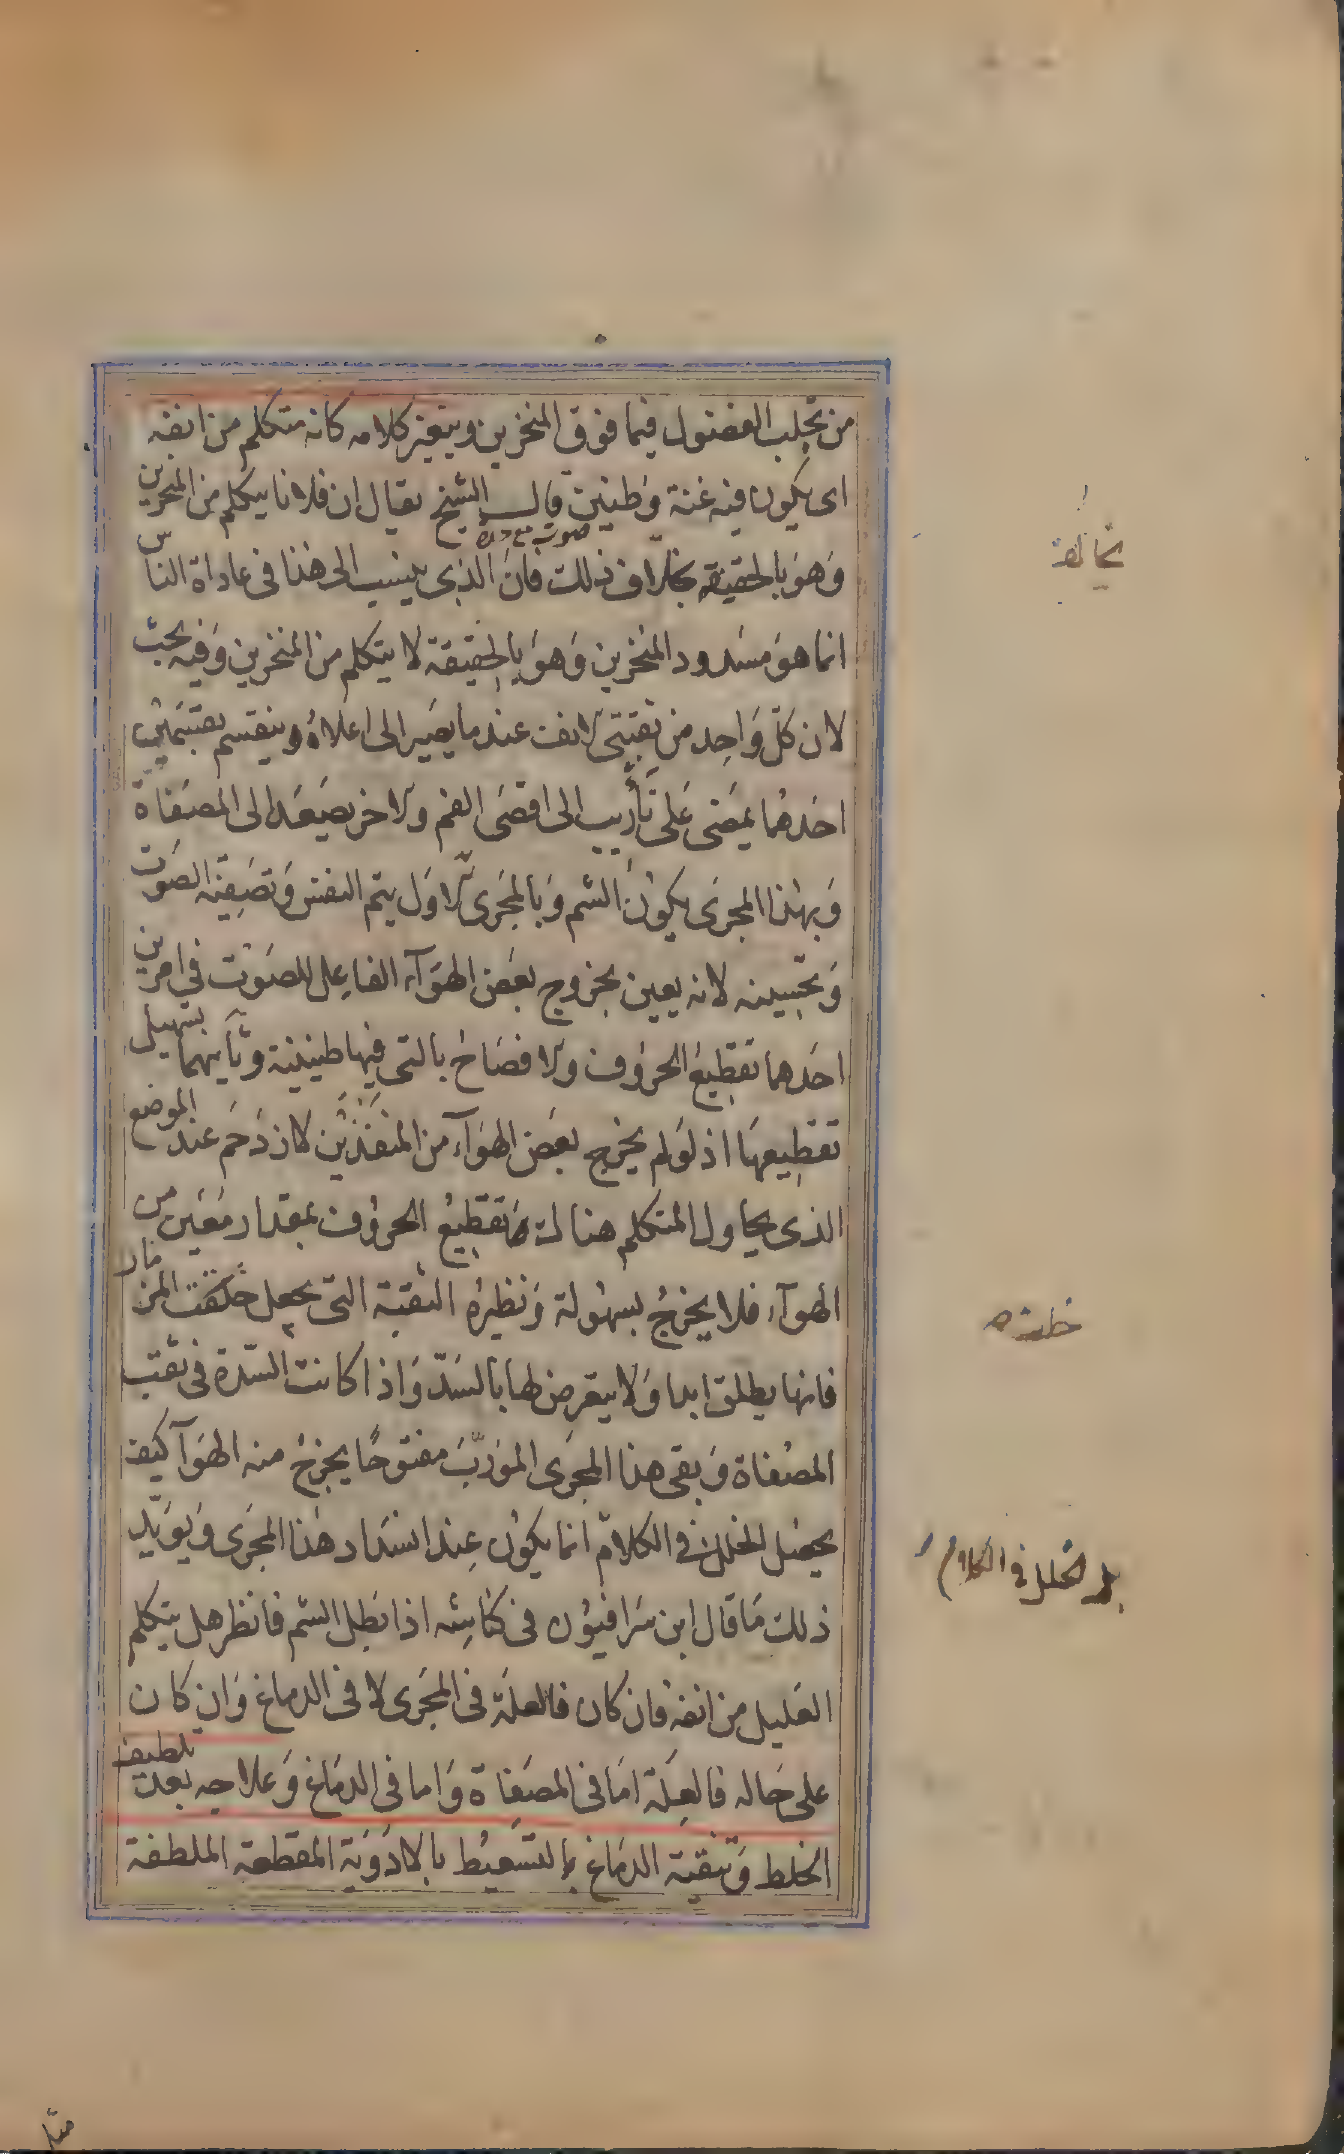 من تجلب الفضول فيما فوق المنخرين ويتغير كلامه كانه متكلم من انفه
اى يكون فيه غنة وطنين قال الشيخ يقال ان فلانا يتكلم من المنخرين
وهو بالحقيقه بخلاف ذلك فان الذى ينسب الى هذا فى عاداة الناس
انما هو مسدود المنخرين وهو بالحقيقة لا يتكلم من المنخرين وفيه بحث
لان كل واحد من ثقبتى الانف عند ما يصير الى اعلاه وينقسم بقسمين
احدهما يمضى على تأريب الى اقصى الفم والاخر يصعد الى المصفاة
وبهذا المجرى يكون الشم وبالمجرى الاول يتم النفس وتصفية الصوت
وتحسينه لانه يعين بخروج بعض الهوآء الفاعل للصوت فى امرين
احدهما تقطيع الحروف والافصاح بالتى فيها طنينية وثانيهما تسهيل
تقطيعها اذ لو لم يخرج بعض الهوآء من المنفذين لازدحم عند الموضع
الذى يحاول المتكلم هناك تقطيع الحروف بمقدار معين من
الهوآء فلا يخرج بسهولة ونظيره الثقبة التى يجعل خلف المزمار
فانها يطلق ابدا ولا يتعرض لها بالسد واذا كانت السدة فى ثقب
المصفاة وبقى هذا المجرى المورب مفتوحًا يخرج منه الهوآ كيف
يحصل الخلل فى الكلام انما يكون عند انسداد هذا المجرى ويويد
ذلك ما قال ابن سرافيون فى كناشه اذا بطل الشم فانظر هل يتكلم
العليل من انفه فان كان فالعلة فى المجرى لا فى الدماغ وان كان
على حاله فالعلة اما فى المصفاة واما فى الدماغ وعلاجه بعد تلطيف
الخلط وتنقية الدماغ بالتسعيط بالادوية المقطعة الملطفة
بل الخلل فى الكلام